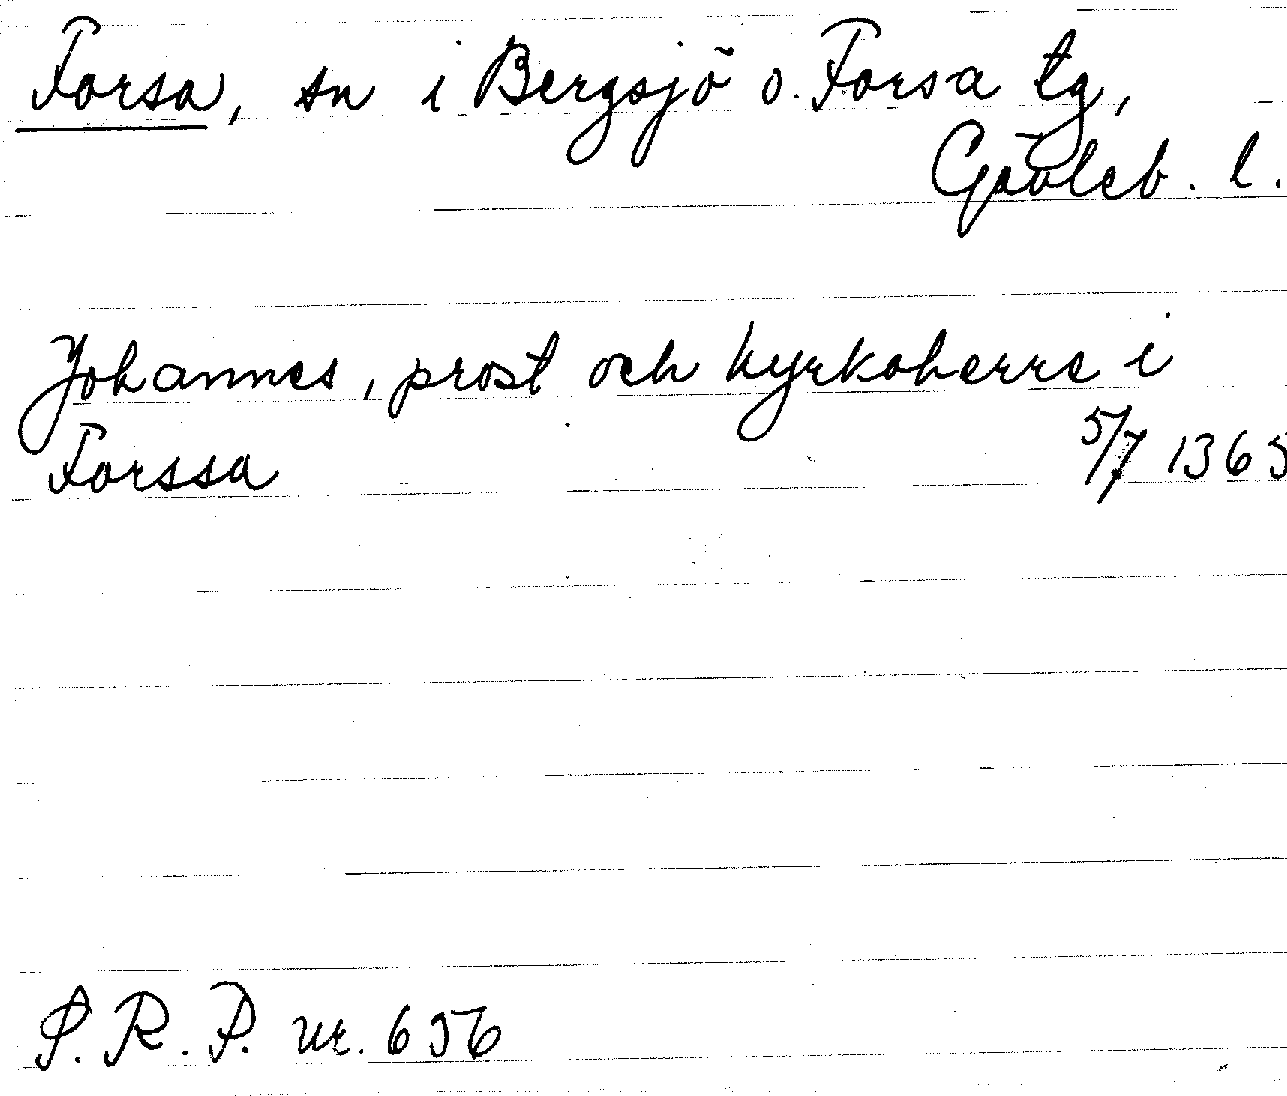 Forsa, sn i Bergsjö o. Forsa tg,
Gävleb. l.
Johannes, prost och kyrkoherre i
Forssa 5/7 1365
S. R. P. nr. 656